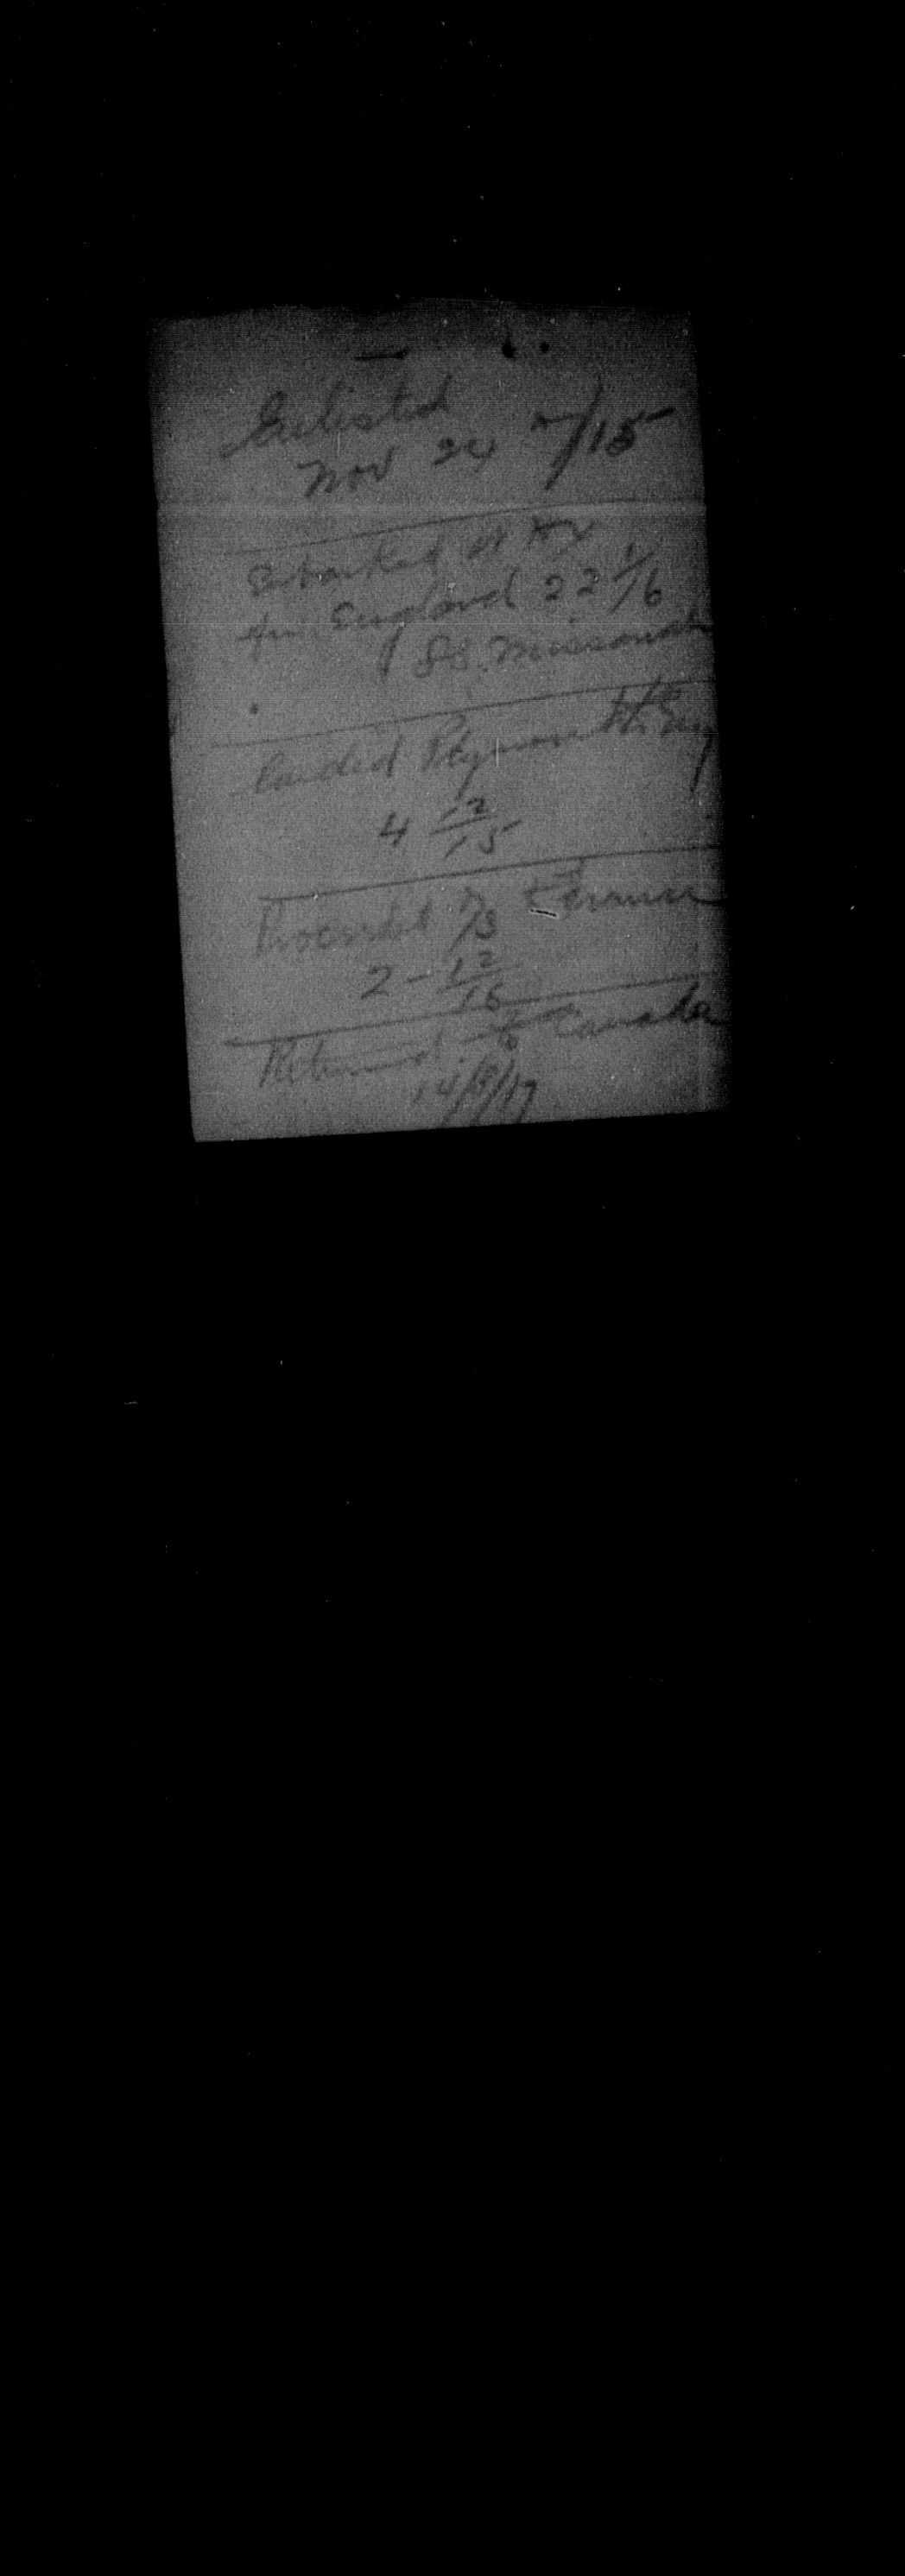 Enlisted
Nov 24 /15
Embarked at Hx
for England 22 1/16
SS. Missanabie
Landed Plymouth Eng
4 12/15
Proceeded
2 - 12/16
Returned to Canada
14/ /17